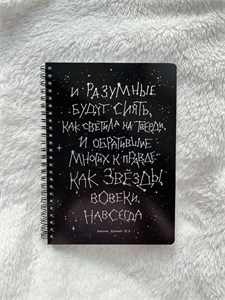 И РАЗУМНЫЕ
БУДУТ СИЯТЬ,
КАК СВЕТИЛА НА ТВЕРДИ,
И ОБРАТИВШИЕ
МНОГИХ К ПРАВДЕ-
КАК ЗВЁЗДЫ,
ВОВЕКИ,
НАВСЕГДА